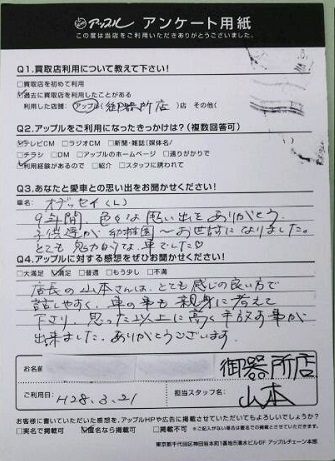 アップル アンケート用紙
この度は当店をご利用いただきありがとうございました。
Q1.買取店利用について教えて下さい!
□買取店を初めて利用
☑過去に買取店を利用したことがある
利用した店舗: アップル(御器所店)店 その他(
Q2.アップルをご利用になったきっかけは?(複数回答可)
☑テレビCM □ラジオCM □新聞・雑誌(媒体名/
□チラシ □DM □アップルのホームページ □通りがかりで
☑利用経験があるので □紹介 □スタッフに誘われて
Q3.あなたと愛車との思い出をお聞かせください!
車名: オデッセイ(L)
9年間、色々な思い出をありがとう。
子供達が幼稚園〜お世話になりました。
とても魅力的な車でした♡
Q4.アップルに対する感想をぜひお聞かせください!
□大満足 ☑満足 □普通 □もう少し □不満
店長の山本さんは、とても感じの良い方で
話しやすく、車の事も親身に考えて
下さり、思った以上に高く手放す事が
出来ました。ありがとうございます。
お名前
御器所店
ご利用日: H28.3.21
担当スタッフ名: 山本
お客様に書いていただいた感想を、アップルHPや広告に掲載させていただいてもよろしいでしょうか?
□実名で掲載可 ☑匿名なら掲載可 □掲載不可
東京都千代田区神田桜本町1番地 アップルチェーン本部